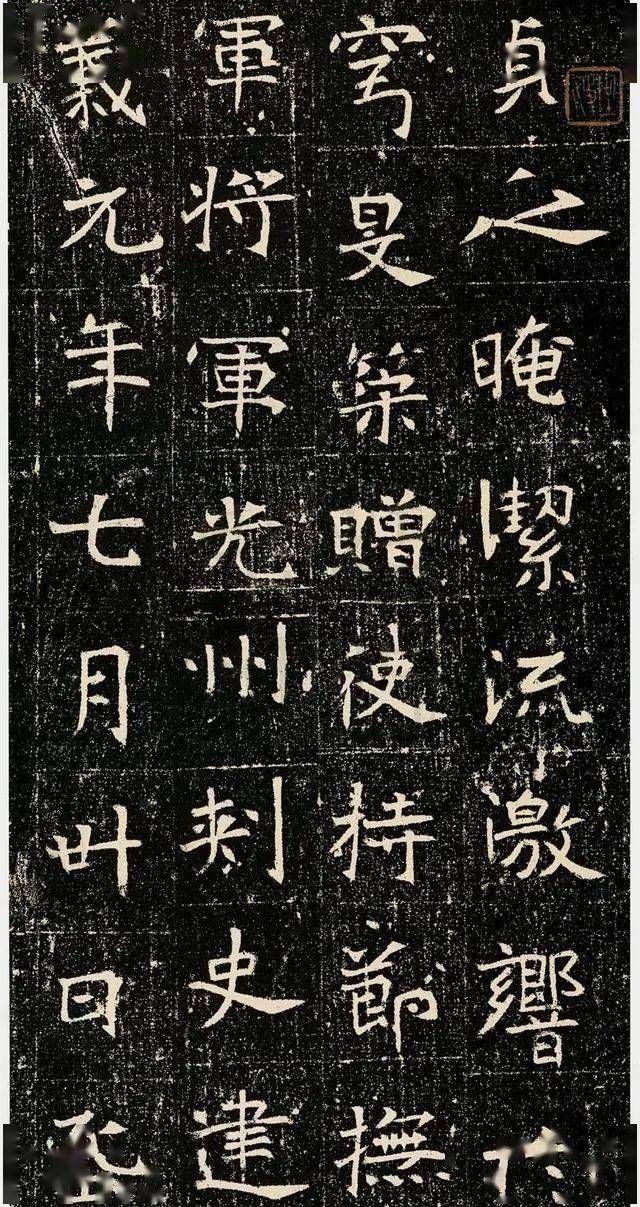 貞之晻潔流激響於
穹旻策贈使持節撫
軍將軍光州刺史建
義元年七月卅日